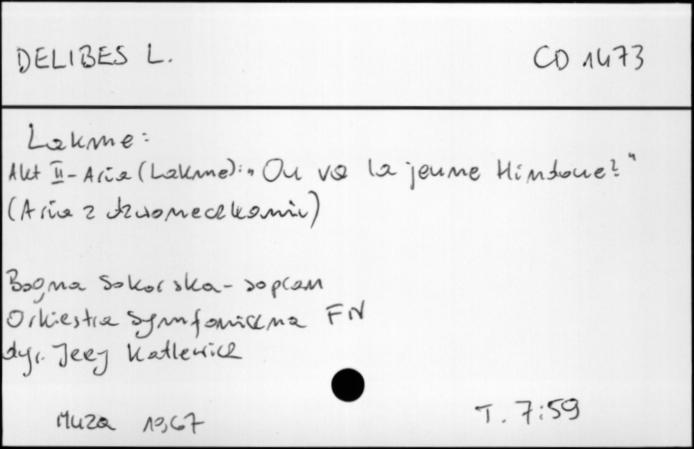 DELIBES L. CD 1473
Lakme:
Akt II - Aria (Lakme): „Ou va la jeune Hindoue?"
(Aria z dzwoneczkami)
Bogna Sokorska - sopran
Orkiestra Symfoniczna FN
dyr. Jerzy Katlewicz
Muza 1967 T. 7:59